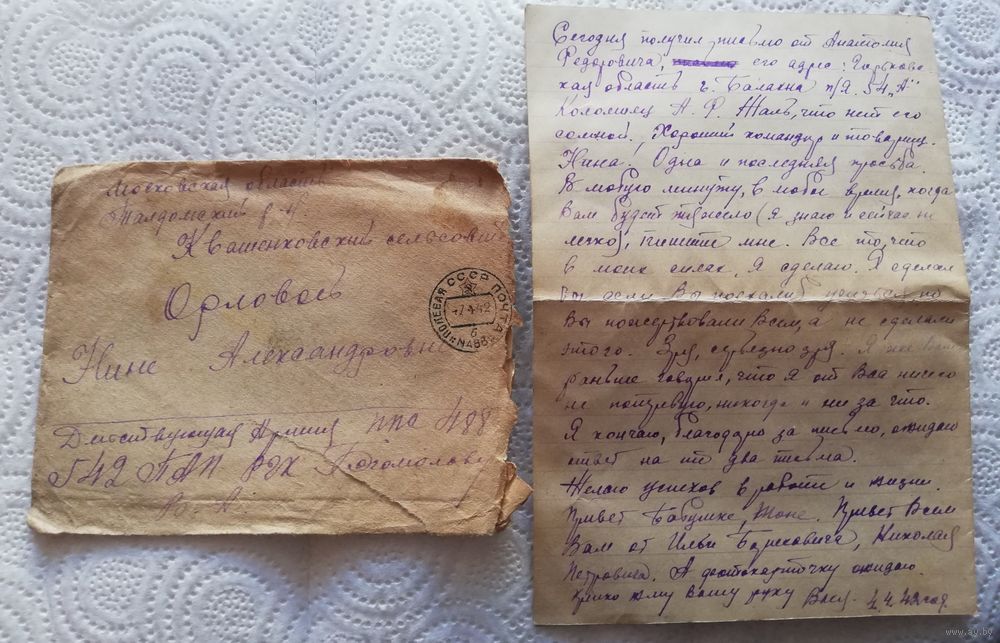 Московская область
Талдомский р-н.
Квашенковский сельсовет
Орловой
Нине Александровне
Действующая Армия ппс 488
542 ПАП Богомолову
В. А.
ПОЛЕВАЯ СССР ПОЧТА
-7 4 42
б
N488
Сегодня получил письмо от Анатолия
Федоровича, его адрес: Горьковс-
кая область г. Балахна п/я. 54 „А"
Коломиец А. Ф. Жаль, что нет его
сомной, Хороший командир и товарищ.
Нина! Одна и последняя просьба.
В любую минуту, в любое время, когда
Вам будет тяжело (Я знаю и сейчас не
легко), пишите мне. Все то, что
в моих силах, Я сделаю. Я сделал
бы если Вы поехали
Вы пожертвовали Всем, а не сделали
этого. Зря, серьезно зря. Я же Вам
раньше говорил, что Я от Вас ничего
не потребую, никогда и ни за что.
Я кончаю, благодарю за письмо, ожидаю
ответ на эти два письма.
Желаю успехов в работе и жизни.
Привет Бабушке, Тоне. Привет Всем
Вам от Ильи Борисовича, Николая
Петровича. А фотокарточку ожидаю.
Крепко жму Вашу руку Вася. 4.4.42год.
www.ay.by